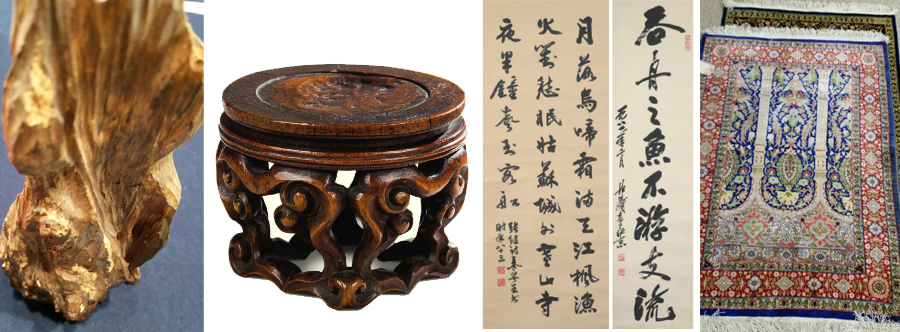 月落烏啼霜滿天江楓漁
火對愁眠姑蘇城外寒山寺
夜半鐘聲到客船
張繼詩
時年八三
吞舟之魚不游支流